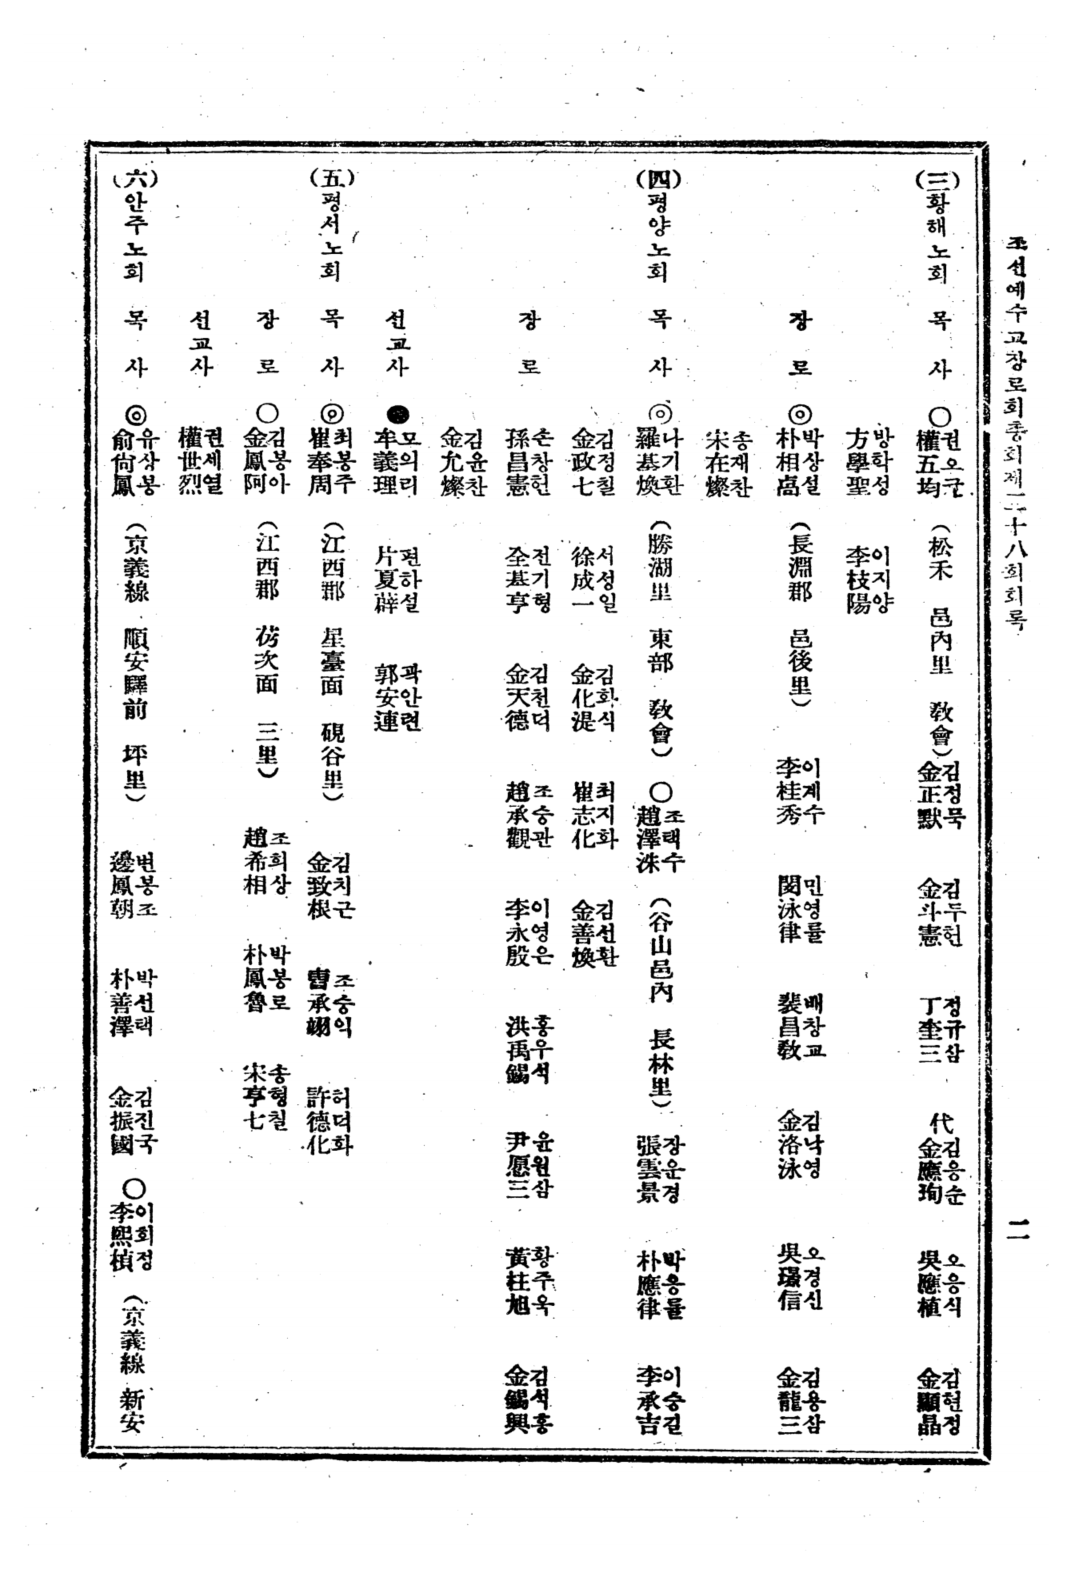 조선예수교장로회총회제二十八회회록 二
(三)황해노회 목사 ○권오균 權五均 (松禾 邑內里 敎會) 김정묵 金正默 김두헌 金斗憲 정규삼 丁奎三 代 김응순 金應珣 오응식 吳應植 김현정 金顯晶
방학성 方學聖 이지양 李枝陽
장로 ◎박상설 朴相卨 (長淵郡 邑後里) 이계수 李桂秀 민영률 閔泳律 배창교 裴昌敎 김낙영 金洛泳 오경신 吳璟信 김용삼 金龍三
송재찬 宋在燦
(四)평양노회 목사 ◎나기환 羅基煥 (勝湖里 東部 敎會) ○조택수 趙澤洙 (谷山邑內 長林里) 장운경 張雲景 박응률 朴應律 이승길 李承吉
김정칠 金政七 서성일 徐成一 김화식 金化湜 최지화 崔志化 김선환 金善煥
장로 손창헌 孫昌憲 전기형 全基亨 김천덕 金天德 조승관 趙承觀 이영은 李永殷 홍우석 洪禹錫 윤원삼 尹愿三 황주욱 黃柱旭 김석흥 金錫興
김윤찬 金允燦
선교사 ●모의리 牟義理 편하설 片夏薛 곽안련 郭安連
(五)평서노회 목사 ◎최봉주 崔奉周 (江西郡 星臺面 硯谷里) 김치근 金致根 조승익 曺承翊 허덕화 許德化
장로 ○김봉아 金鳳阿 (江西郡 芿次面 三里) 조희상 趙希相 박봉로 朴鳳魯 송형칠 宋亨七
선교사 권세열 權世烈
(六)안주노회 목사 ◎유상봉 兪尙鳳 (京義線 順安驛前 坪里) 변봉조 邊鳳朝 박선택 朴善澤 김진국 金振國 ○이희정 李熙楨 (京義線 新安